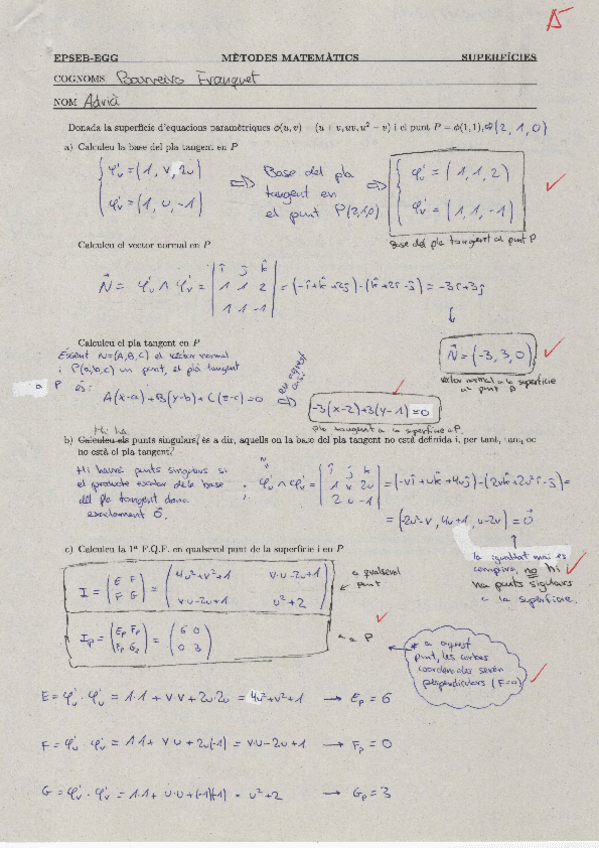 EPSEB-EGG MÈTODES MATEMÀTICS SUPERFÍCIES
COGNOMS Barreiro Franquet
NOM Adrià
Donada la superfície d'equacions paramètriques ϕ(u, v) = (u + v, uv, u² − v) i el punt P = ϕ(1, 1), Φ(2, 1, 0)
a) Calculeu la base del pla tangent en P
φ'u = (1, v, 2u)
φ'v = (1, u, -1)
⇒ Base del pla tangent en el punt P(2,1,0) ⇒
φ'u = (1, 1, 2)
φ'v = (1, 1, -1)
Base del pla tangent al punt P
Calculeu el vector normal en P
N = φ'u ∧ φ'v = | i j k 1 1 2 1 1 -1 | = (-i+k+2j)-(k+2i-j) = -3i+3j
↓
N = (-3, 3, 0)
vector normal a la superfície al punt P
Calculeu el pla tangent en P
Essent N=(A,B,C) el vector normal
i P(a,b,c) un punt, el pla tangent
a P és:
A(x-a)+B(y-b)+C(z-c)=0 ⇒
-3(x-2)+3(y-1)=0
pla tangent a la superfície a P.
Hi ha
b) Calculeu els punts singulars? és a dir, aquells on la base del pla tangent no està definida i, per tant, tampoc
ho està el pla tangent?
Hi haurà punts singulars si
el producte escalar dels base
del pla tangent dona
exactament 0.
φ'u ∧ φ'v = | i j k 1 v 2u 1 u -1 | = (-vi+uk+2uj)-(vk+2u²i-j)=
= (-2u²-v, 4u+1, u-2v) = 0
↑
la igualtat mai es
compleix, no hi
ha punts sigulars
a la superfície.
c) Calculeu la 1ª F.Q.F. en qualsevol punt de la superfície i en P
I = (E F F G) = (4u²+v²+1 v·u-2u+1 v·u-2u+1 u²+2) ← a qualsevol punt
Ip = (Ep Fp Fp Gp) = (6 0 0 3) ← a P
* a aquest
punt, les corbes
coordenades seran
perpendiculars (F=0)
E = φ'u · φ'u = 1·1 + v·v + 2u·2u = 4u²+v²+1 → Ep = 6
F = φ'u · φ'v = 1·1 + v·u + 2u(-1) = v·u-2u+1 → Fp = 0
G = φ'v · φ'v = 1·1 + u·u + (-1)(-1) = u²+2 → Gp = 3